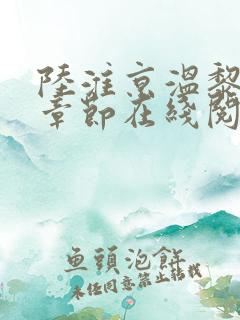 陸淮京溫黎
章節在綫閱
魚頭泡餅
未經同意禁止轉載